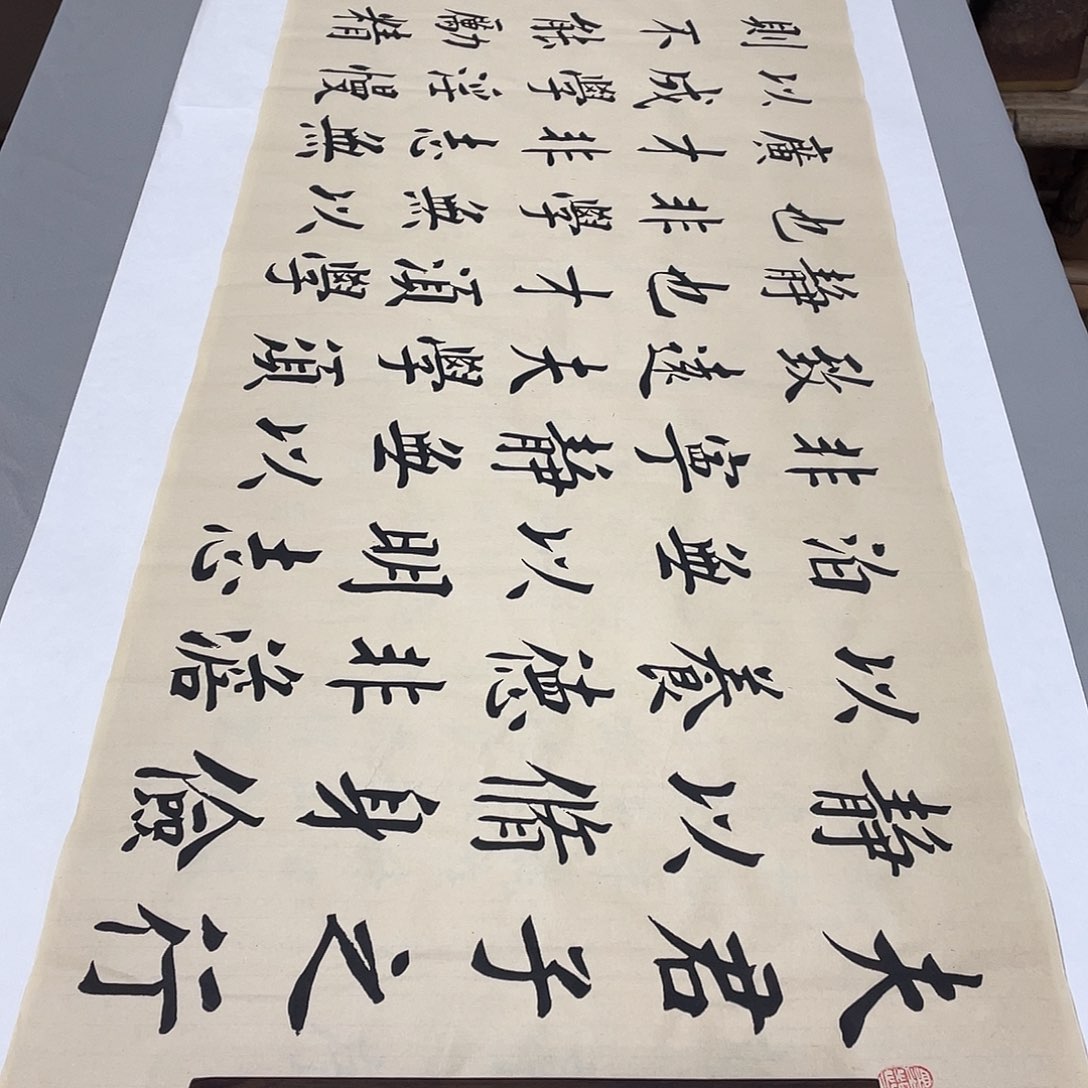 夫君子之行
靜以脩身儉
以養德非澹
泊無以明志
非寧靜無以
致遠夫學須
靜也才須學
也非學無以
廣才非志無
以成學淫慢
則不能勵精